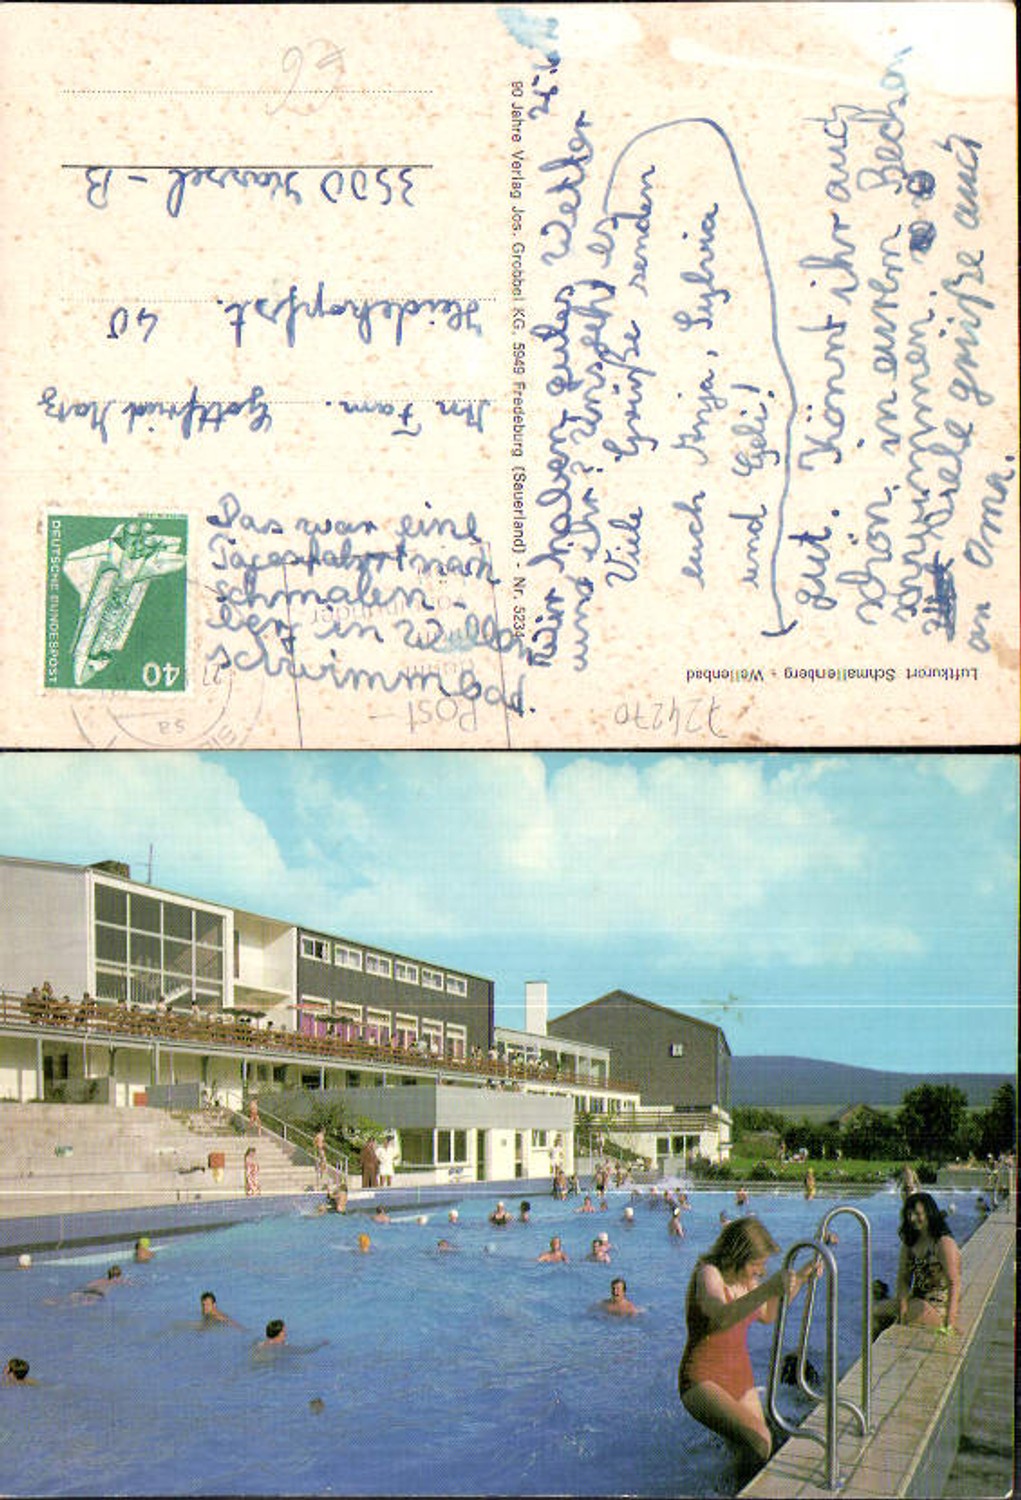 Luftkurort Schmallenberg - Wellenbad
80 Jahre Verlag Jos. Grobbel KG, 5949 Fredeburg (Sauerland) - Nr. 5234
25.6.
Wir haben gutes Wetter
und ihr? Uns geht es
Viele Grüße senden
euch Anja, Sylvia
und Geli!
gut. Könnt ihr auch
schön in eurem Becken
schwimmen.
Viele grüße auch
an Oma.
Das war eine
Tagesfahrt
schmalen-
schwimmbad
DEUTSCHE BUNDESPOST
40
An Fam. Gottfried
40
3500 Kassel - B
Post-
724270